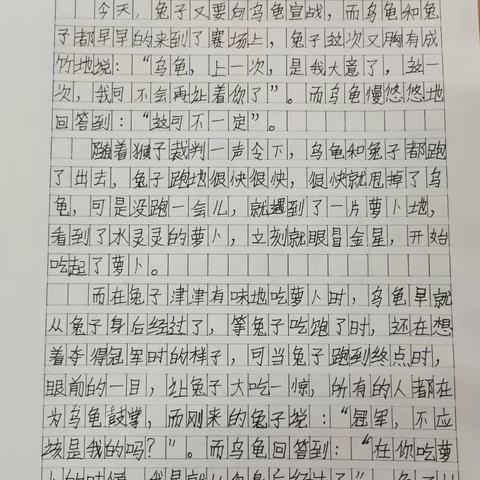 今天，兔子又要向乌龟宣战，而乌龟和兔
子都早早的来到了赛场上，兔子这次又胸有成
竹地说：“乌龟，上一次，是我大意了，这一
次，我可不会再让着你了”。而乌龟慢悠悠地
回答到：“这可不一定”。
随着猴子裁判一声令下，乌龟和兔子都跑
了出去，兔子跑地很快很快，很快就甩掉了乌
龟，可是没跑一会儿，就遇到了一片萝卜地，
看到了水灵灵的萝卜，立刻就眼冒金星，开始
吃起了萝卜。
而在兔子津津有味地吃萝卜时，乌龟早就
从兔子身后经过了，等兔子吃跑了时，还在想
着夺得冠军时的样子，可当兔子跑到终点时，
眼前的一目，让兔子大吃一惊，所有的人都在
为乌龟鼓掌，而刚来的兔子说：“冠军，不应
该是我的吗？”。而乌龟回答到：“在你吃萝
卜的时候，我早就从你身后经过了”。兔子